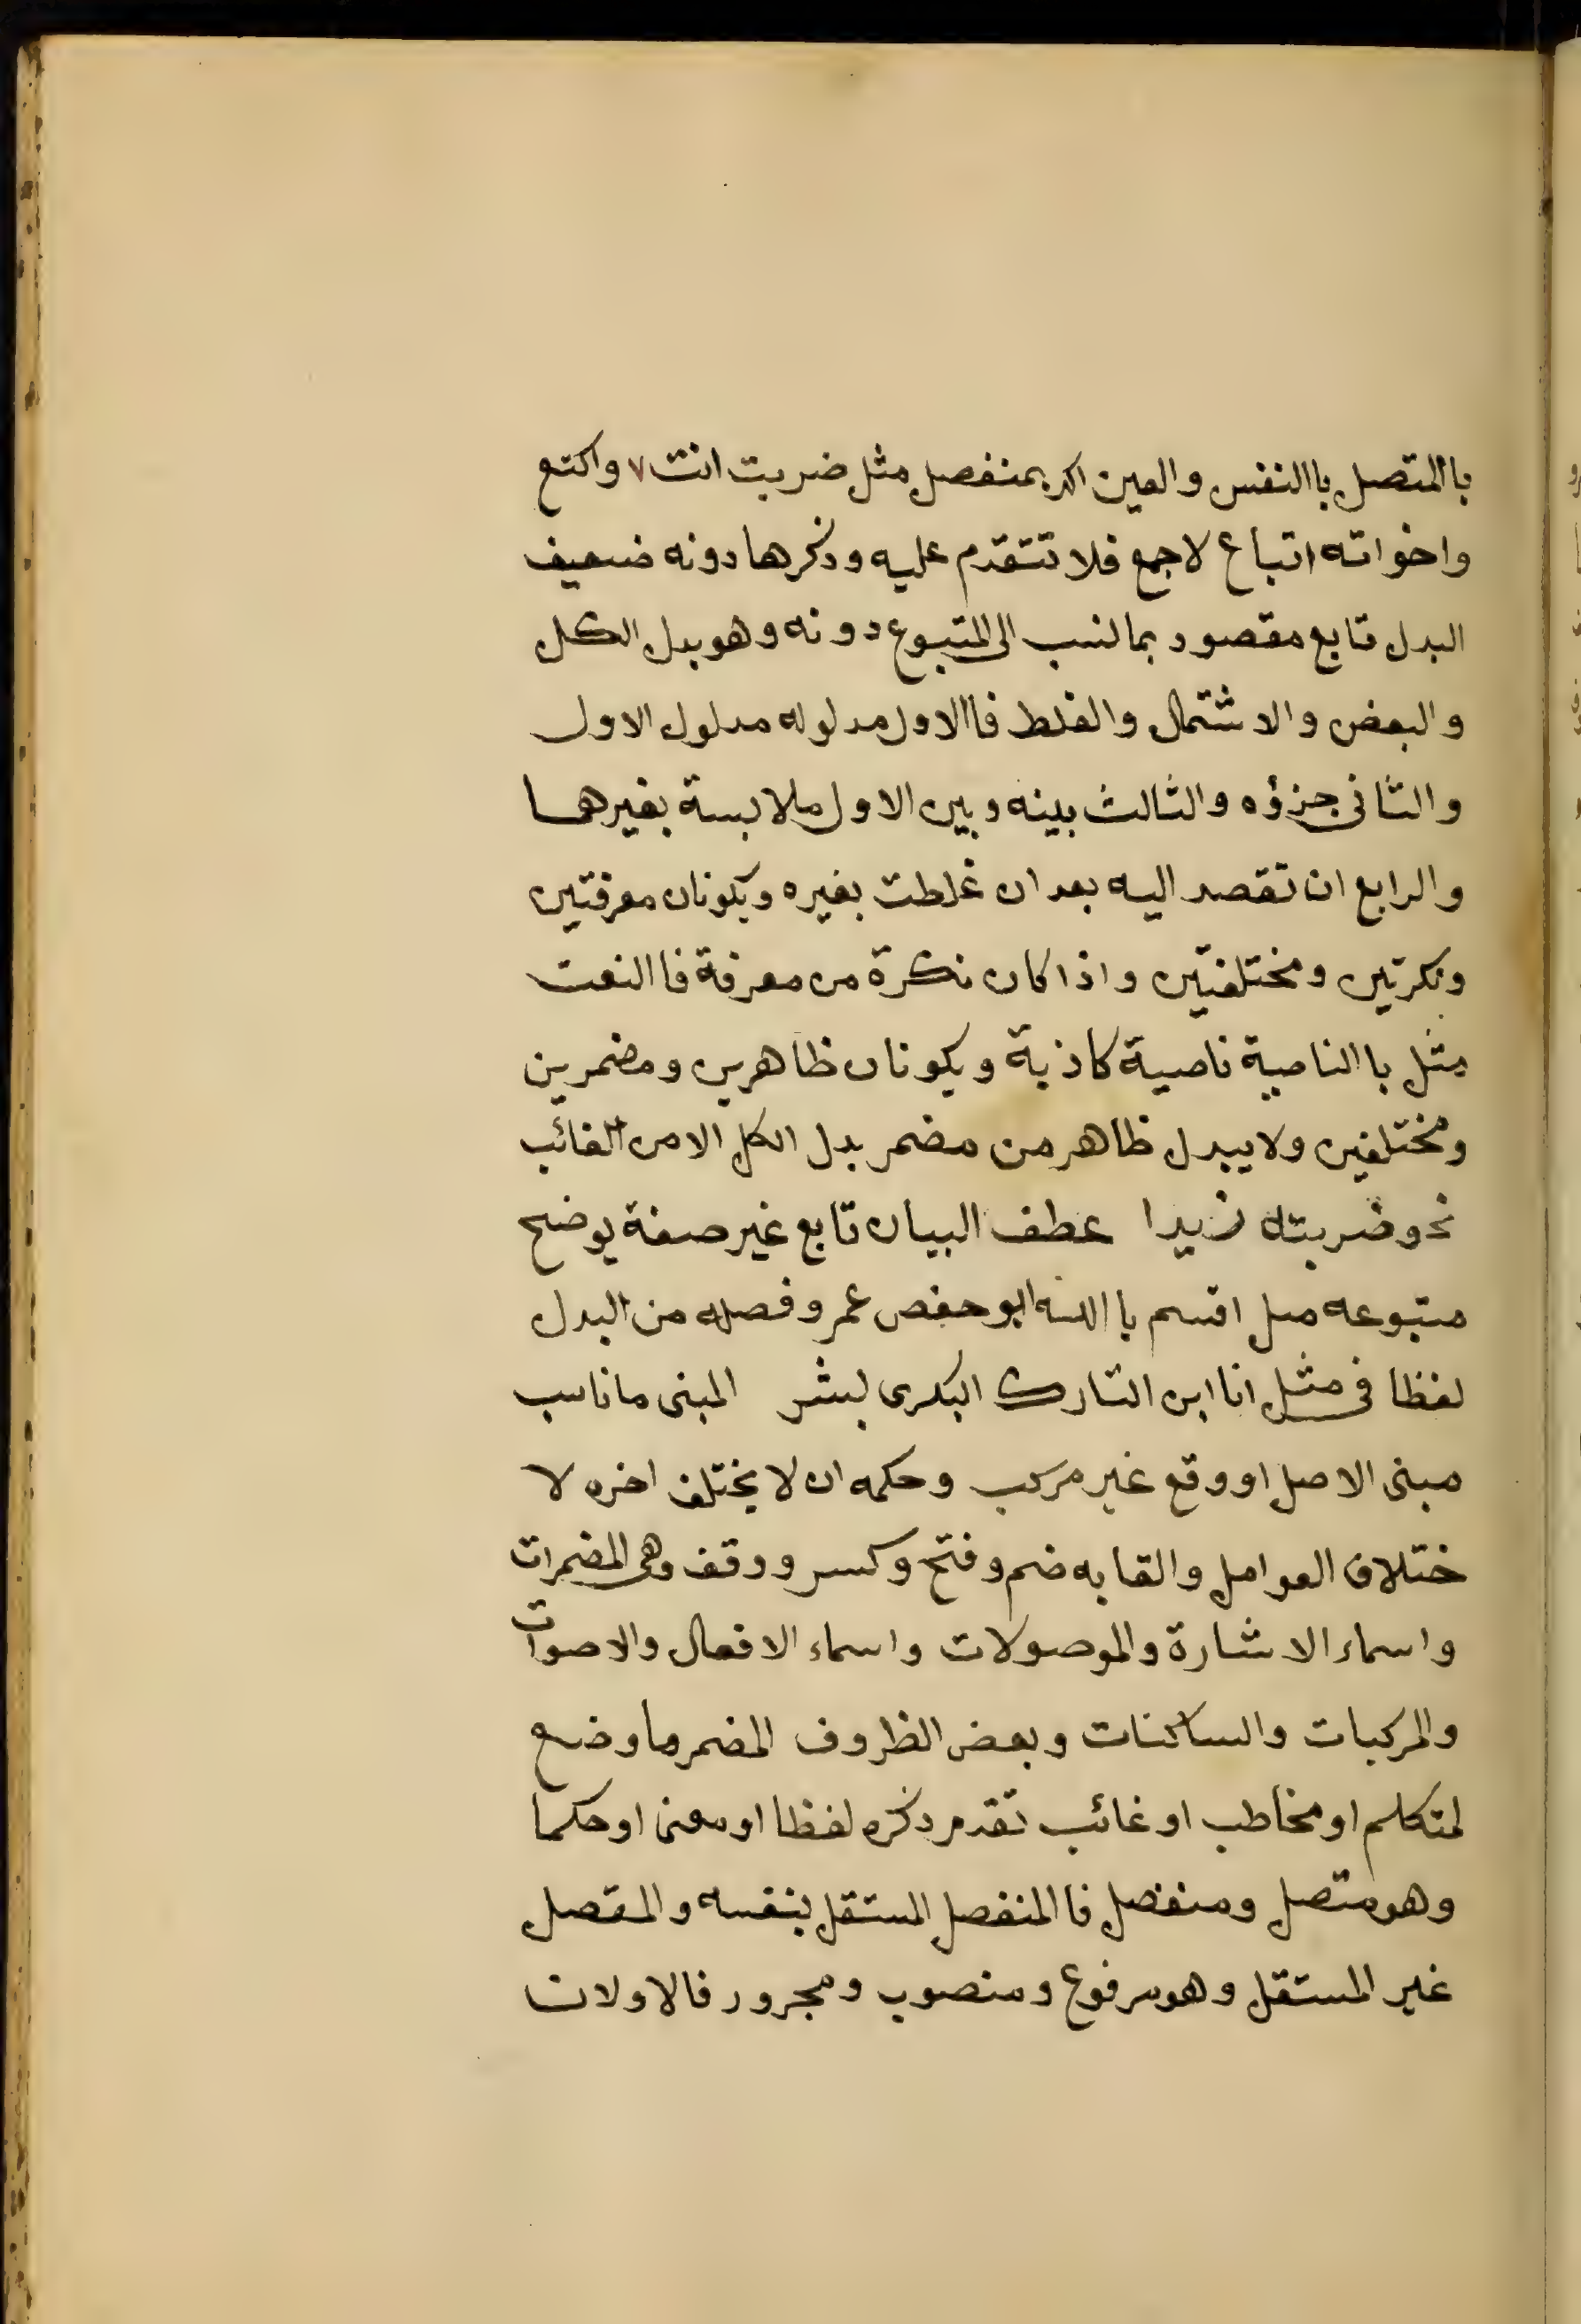 باالمتصل باالنفس والعين اكد بمنفصل مثل ضربت انت ٧ واكتع
واخواته اتباع لاجمع فلا تتقدم عليه وذكرها دونه ضعيف
البدل تابع مقصود بما نسب الى المتبوع دونه وهو بدل الكل
والبعض والاشتمال والغلط فاالاول مدلوله مدلول الاول
والثانى جزؤه والثالث بينه وبين الاول ملابسة بغيرهما
والرابع ان تقصد اليه بعد ان غلطت بغيره ويكونان معرفتين
ونكرتين ومختلفتين واذا كان نكرة من معرفة فاالنعت
مثل باالناصية ناصية كاذبة ويكونان ظاهرين ومضمرين
ومختلفين ولا يبدل ظاهر من مضمر بدل الكل الا من الغائب
نحو ضربته زيدا عطف البيان تابع غير صفة يوضح
متبوعه مثل اقسم باالله ابو حفص عمر وفصله من البدل
لفظا فى مثل انا ابن التارك البكرى بشر المبنى ما ناسب
مبنى الاصل او وقع غير مركب وحكمه ان لا يختلف اخره لا
ختلاف العوامل والقابه ضم وفتح وكسر ووقف وهى المضمرات
واسماء الاشارة والموصولات واسماء الافعال والاصوات
والمركبات والساكنات وبعض الظروف المضمر ما وضع
لمتكلم او مخاطب او غائب تقدم ذكره لفظا او معنى او حكما
وهو متصل ومنفصل فاالمنفصل المستقل بنفسه والمتصل
غير المستقل وهو مرفوع ومنصوب ومجرور فالاولان